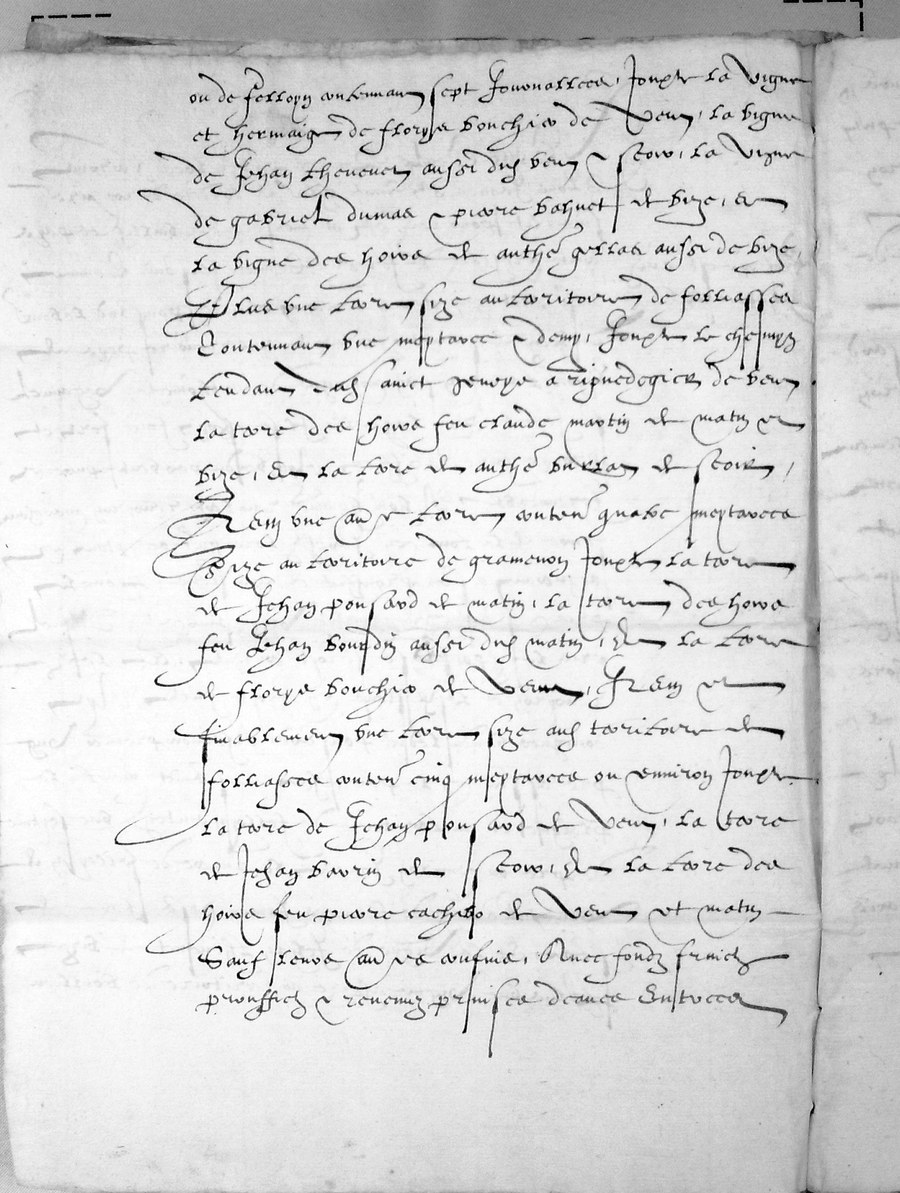 ou de felloyn contenant sept Jouvnallees, Jouxte la vigne
et hermaige de florys bouchier de vent, la vigne
de Jehan thevenet aussi dud vent & soir, la vigne
de gabriel dumas & pierre bahuet de bize, et
la vigne des hoirs de anthe gellas aussi de bize,
Plus une terre size au territoire de folliasses
Contenant une meytaree & demy, Jouxte le chemyn
tendant dud sainct a de vent
la terre des hoirs feu claude martin de matin et
bize, Et la terre de anthe burlan de soir,
Item une au e terre conten quatre meytarees
Size au territoire de gramenon Jouxte la terre
de Jehan ponsard de matin, la terre des hoirs
feu Jehan bourdin aussi dud matin, Et la terre
de florys bouchier de vent, Item et
finablement une terre size aud territoire de
folliasses conten cinq meytarees ou environ Jouxte
la terre de Jehan ponsard de vent, la terre
de Jehan bavrin de soir, Et la terre des
hoirs feu pierre cachet de vent et matin
Sauf leurs au es confins, Avec fondz fruictz
prouffictz & revenuz prinses deaues Entrees